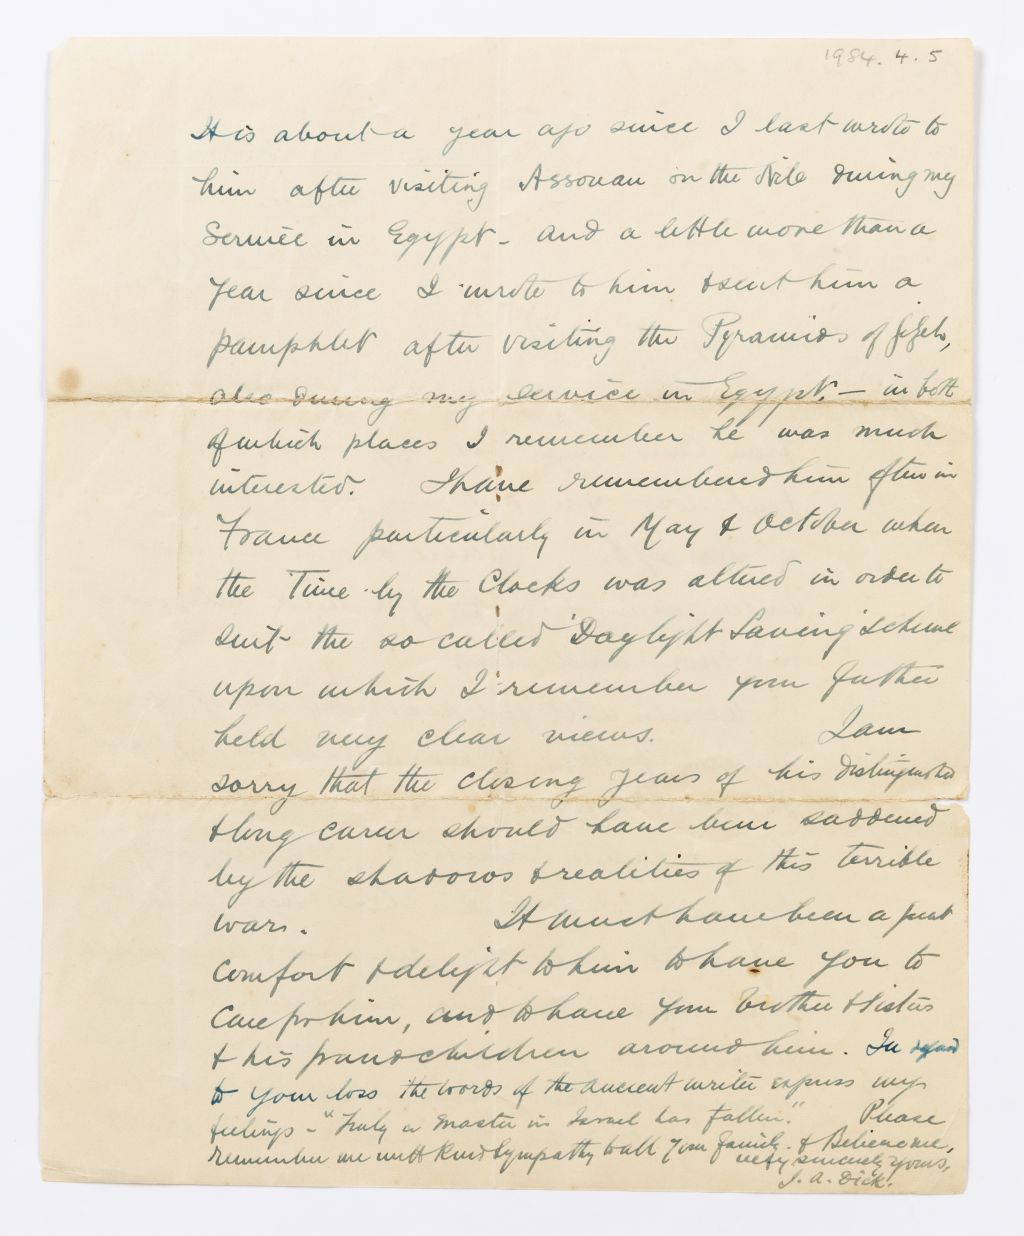 1984. 4. 5
It is about a year ago since I last wrote to
him after visiting Assouan on the Nile during my
Service in Egypt - and a little more than a
year since I wrote to him & sent him a
pamphlet after visiting the Pyramids of Gizeh,
also during my service in Egypt. — in both
of which places I remember he was much
interested. I have remembered him often in
France particularly in May & October when
the Time by the Clocks was altered in order to
suit the so called 'Daylight Saving' scheme
upon which I remember your father
held very clear views. I am
sorry that the closing years of his distinguished
& long career should have been saddened
by the shadows & realities of this terrible
war. It must have been a great
comfort & delight to him to have you to
care for him, and to have your brother & sisters
& his grandchildren around him. In regard
to your loss the words of the ancient writer express my
feelings - "Truly a master in Israel has fallen." Please
remember me with kind sympathy to all your family. & Believe me,
very sincerely yours,
J. A. Dick.